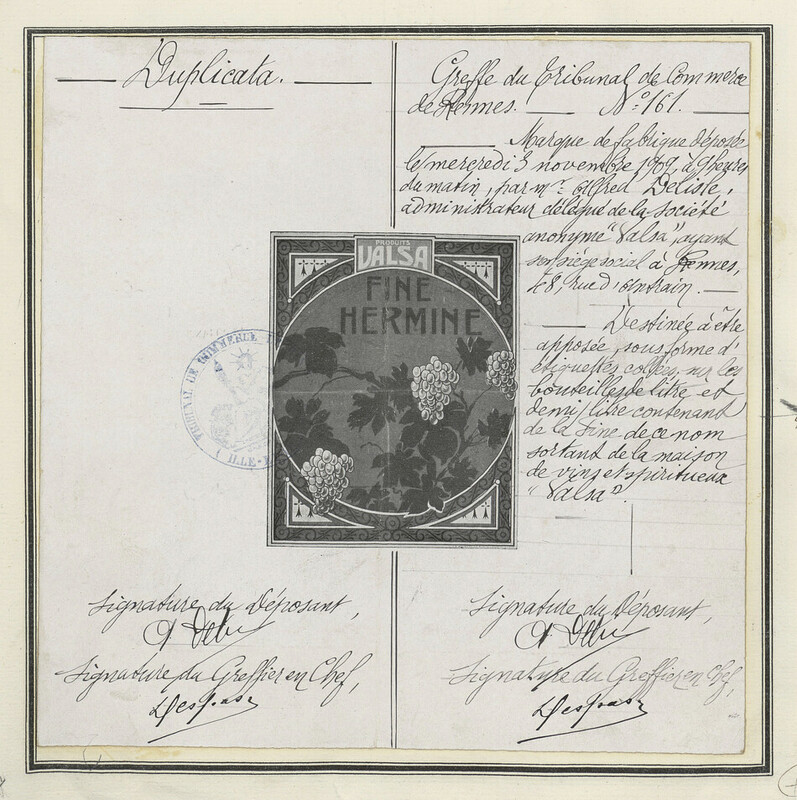 Duplicata.
Greffe du Tribunal de Commerce
de Rennes. N° 161.
Marque de fabrique déposée
le mercredi 3 novembre 1909, à 9 heures
du matin, par Mr. Alfred Delisle,
administrateur délégué de la société
anonyme "Valsa", ayant
son siège social à Rennes,
48, rue d'Antrain.
Destinée à être
apposée, sous forme d'
étiquettes collées, sur les
bouteilles de litre et
demi litre contenant
de la fine de ce nom
sortant de la maison
de vins et spiritueux
"Valsa".
PRODUITS
VALSA
FINE
HERMINE
TRIBUNAL DE COMMERCE
ILLE-
Signature du Déposant,
Signature du Greffier en Chef,
Signature du Déposant,
Signature du Greffier en Chef,